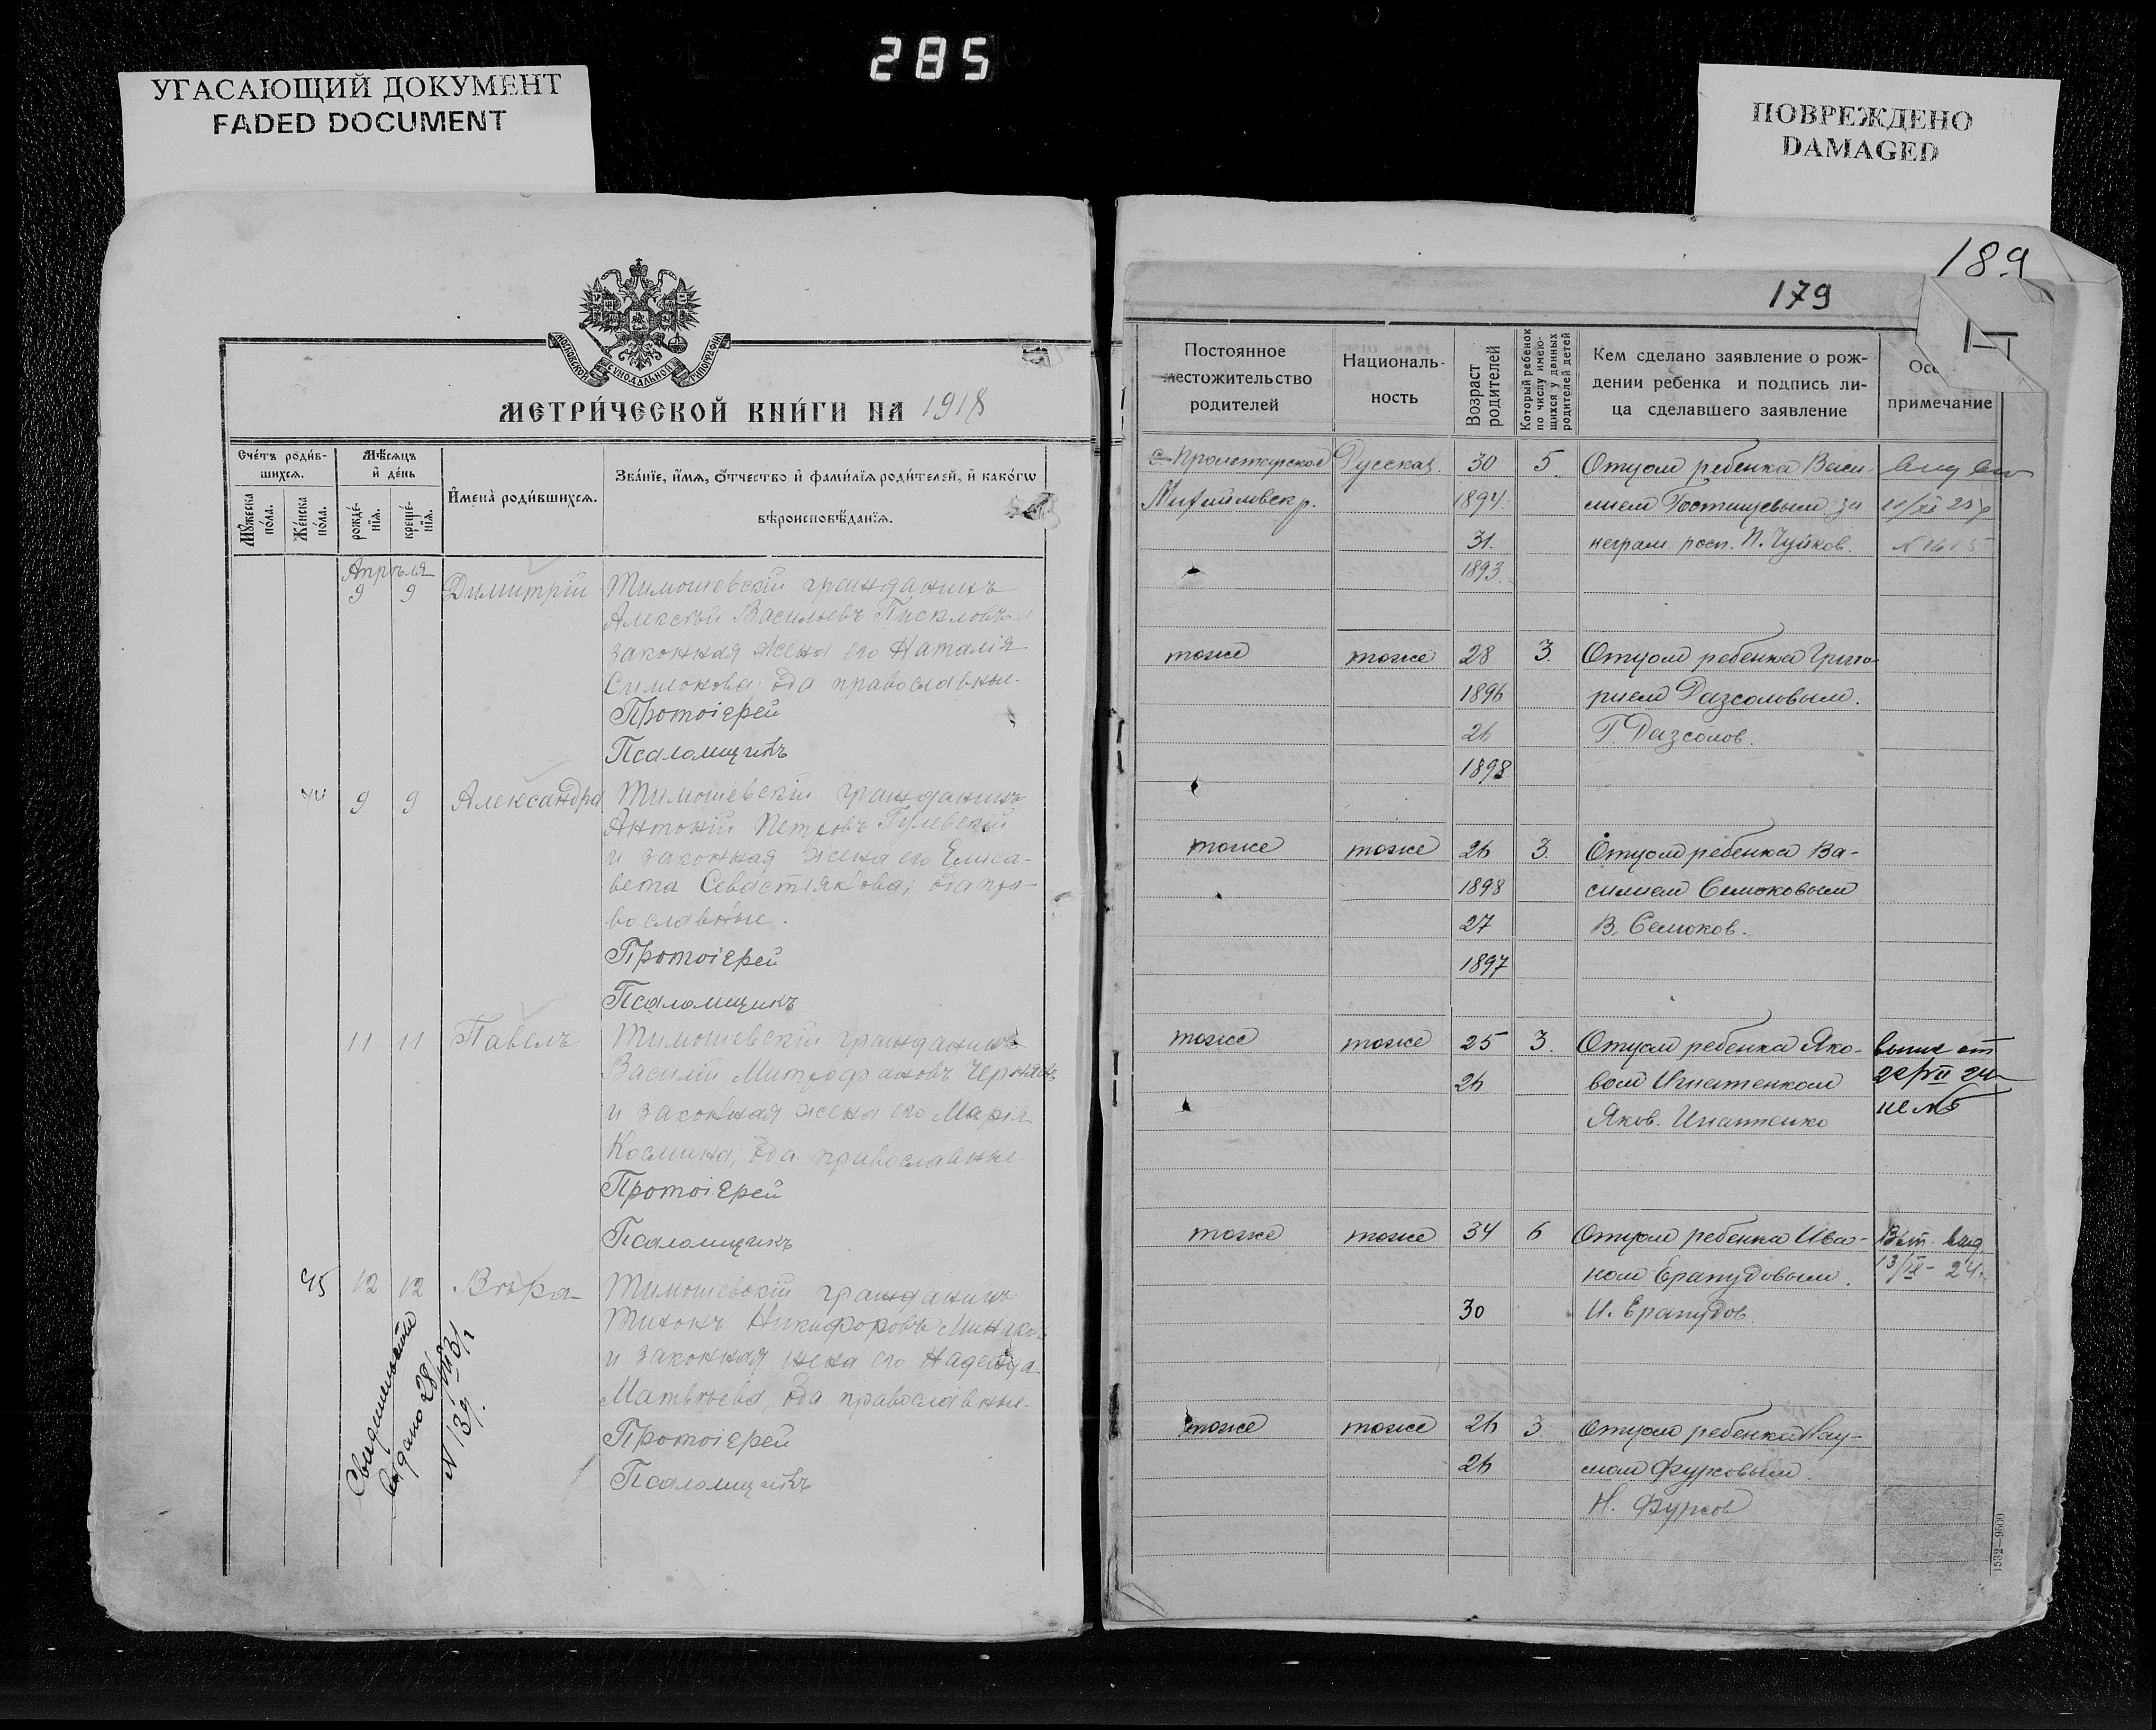 285
УГАСАЮЩИЙ ДОКУМЕНТ
FADED DOCUMENT
ПОВРЕЖДЕНО
DAMAGED
МОСКОВСКОЙ СѴНОДАЛЬНОЙ ТИПОГРАФІИ
МЕТРИ́ЧЕСКОЙ КНИ́ГИ НА 1918
Сче́тъ роди́в-
шихся.
Мꙋжеска по́ла.
Же́нска по́ла.
Мѣ́сяцъ
и҆ де́нь
рожде́-
нїя.
креще́-
нїя.
И҆мена̀ роди́вшихся.
Зва́нїе, и҆́мя, ѻ҆́тчество и҆ фами́лїя роди́телей, и҆ како́гѡ
вѣроисповѣ́данїя.
Апрѣля
9 9 Димитрій Тимошевскій гражданинъ
Алексѣй Васильевъ Пискловъ и
законная жена его Наталія
Симонова, оба православные.
Протоіерей
Псаломщикъ
44 9 9 Александра Тимошевскій гражданинъ
Антоній Петровъ Гулевскій
и законная жена его Елиса-
вета Севастіянова; оба пра-
вославные.
Протоіерей
Псаломщикъ
11 11 Павелъ Тимошевскій гражданинъ
Василій Митрофановъ Черняевъ
и законная жена его Марія
Космина; оба православные
Протоіерей
Псаломщикъ
45 12 12 Вѣра Тимошевскій гражданинъ
Тихонъ Никифоровъ
и законная жена его Надежда
Матвѣева, оба православные.
Протоіерей
Псаломщикъ
Свидетельство
выдано 28/VII 31 г
N 139.
189
179
Постоянное
местожительство
родителей
Националь-
ность
Возраст
родителей
Который ребенок
по числу имею-
щихся у данных
родителей детей
Кем сделано заявление о рож-
дении ребенка и подпись ли-
ца сделавшего заявление
примечание
с. Пролетарское Русская 30 5. Отцом ребенка Васи-
Михайловск р. 1894. лием Гостищевым за 11/XI 25 г
31. неграм. росп. П. Чуйков. N 1615
1893.
тоже тоже 28 3. Отцом ребенка Григо-
1896 рием Дазсоловым.
26 Г. Дазсолов.
1898
тоже тоже 26 3. Отцом ребенка Ва-
1898 силием Семоковым
27 В. Семоков.
1897
тоже тоже 25 3. Отцом ребенка Яко-
26 вом Игнатенком
Яков. Игнатенко
тоже тоже 34 6 Отцом ребенка Ива-
ном Ерапудовым. 13/IX - 24
30 И. Ерапудов.
тоже тоже 26 3 Отцом ребенка Нау-
26 мом Фурсовым.
Н. Фурсов
1532—9600